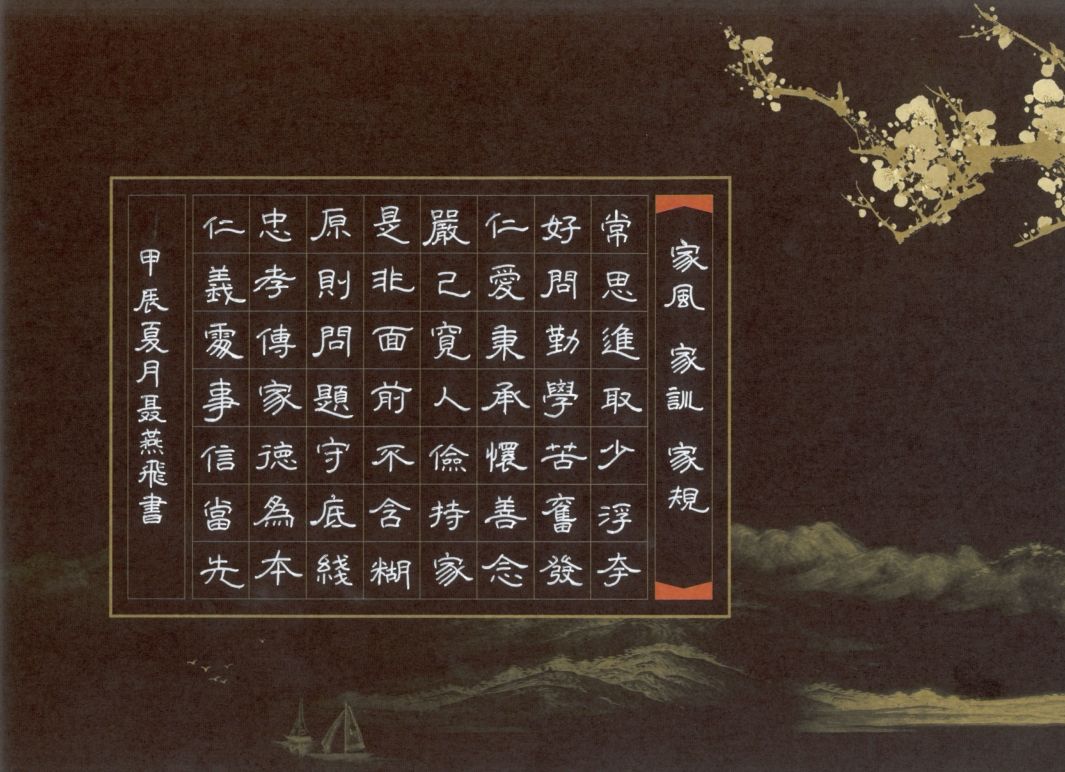 家風 家訓 家規
常思進取少浮夸
好問勤學苦奮發
仁愛秉承懷善念
嚴己寬人儉持家
是非面前不含糊
原則問題守底綫
忠孝傳家德為本
仁義處事信當先
甲辰夏月聂燕飛書